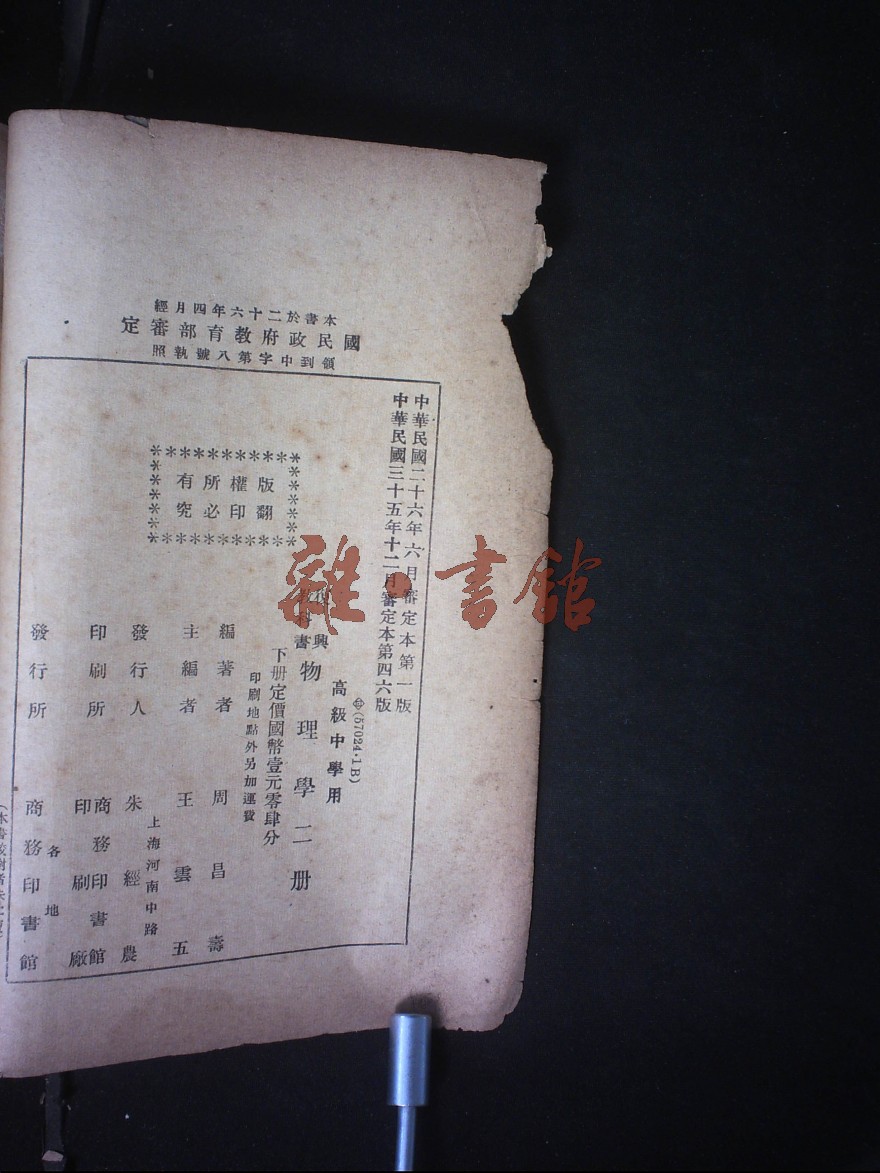 本書於二十六年四月經
國民政府教育部審定
領到中字第八號執照
中華民國二十六年六月審定本第一版
中華民國三十五年十二月審定本第四六版
(57024·1B)
高級中學用
復興
教科書
物理學二册
下册定價國幣壹元零肆分
印刷地點外另加運費
版權所有
翻印必究
編著者 周昌壽
主編者 王雲五
上海河南中路
發行人 朱經農
印刷所 商務印書館
印刷廠
各地
發行所 商務印書館
雜·書館